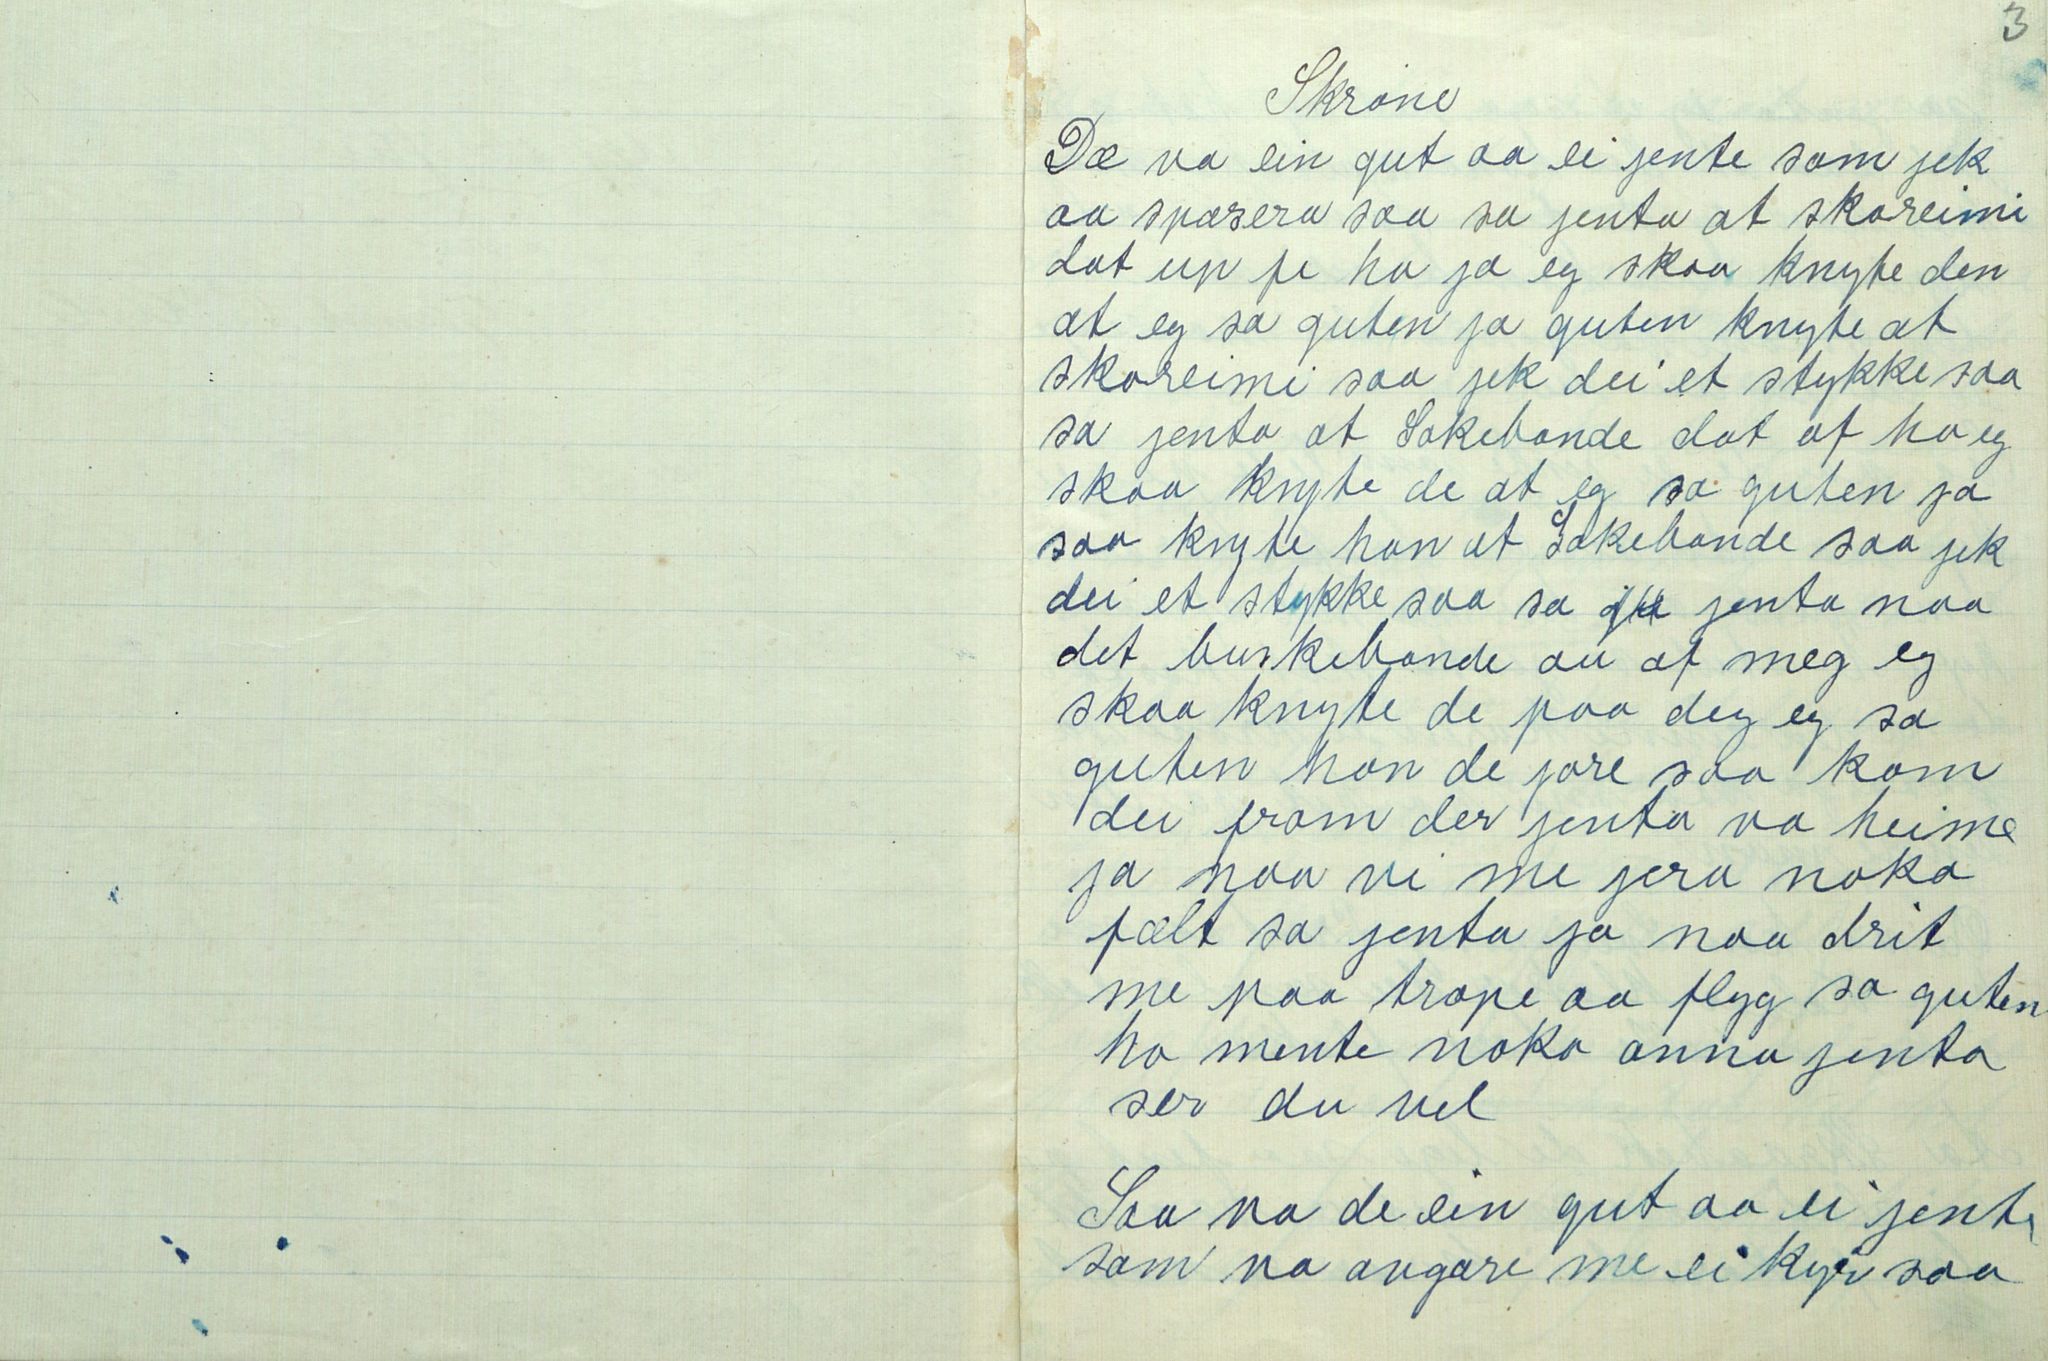 3
Skrone
Dæ va ein gut aa ei jente som jek
aa spasera saa sa jenta at skoreimi
dat up fe ho ja eg skaa knyte den
at eg sa guten ja guten knyte at
skoreimi saa jek dei et stykke saa
sa jenta at Sokebonde dat af ho eg
skaa knyte de at eg sa guten ja
saa knyte han at Sokebonde saa jek
dei et stykke saa sa jenta naa
det buskebonde au af meg eg
skaa knyte de paa deg eg sa
guten han de jore saa kom
dei fram der jenta va heime
ja naa vi me jera noko
fælt sa jenta ja naa drit
me paa trope aa flyg sa guten
ho mente noko anna jenta
ser du vel
Saa va de ein gut aa ei jente
som va avgare me ei kyr saa